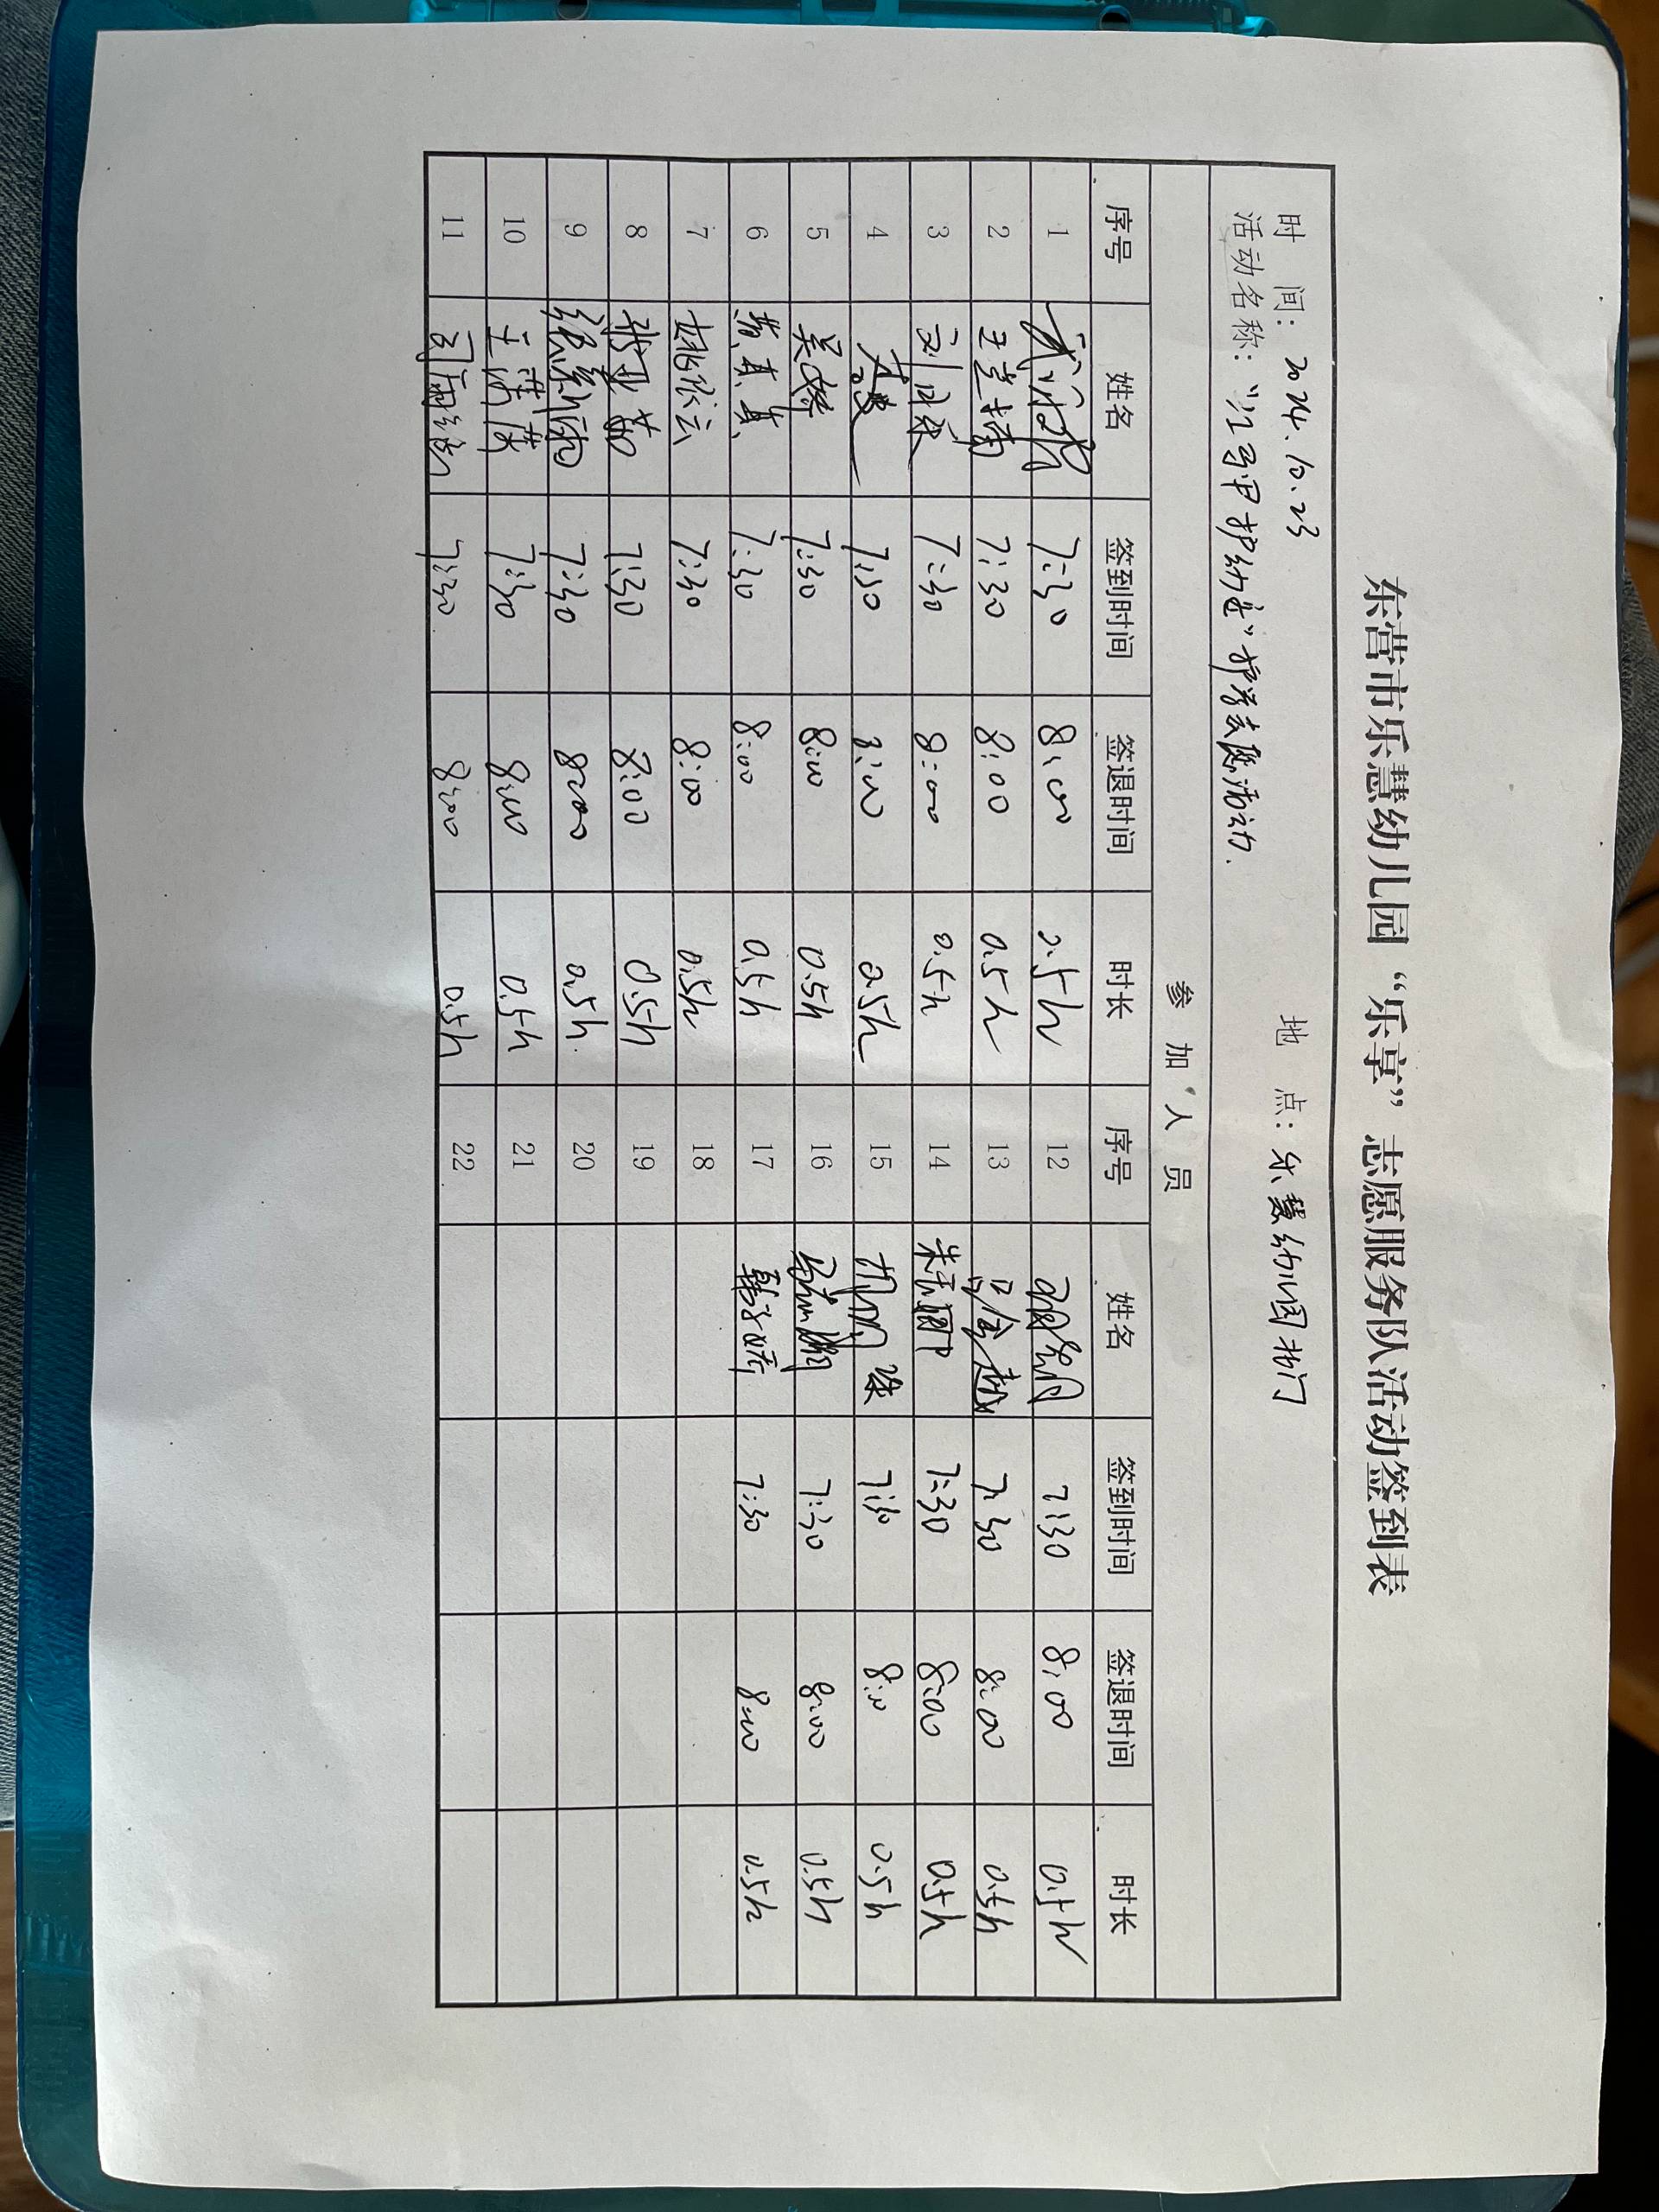 东营市乐慧幼儿园“乐享”志愿服务队活动签到表
时 间：2024.10.23 地 点：乐慧幼儿园大门
活动名称：“红马甲护幼童”护学志愿活动.
参 加 人 员
序号 姓名 签到时间 签退时间 时长 序号 姓名 签到时间 签退时间 时长
1 7:30 8:00 0.5h 12 7:30 8:00 0.5h
2 王兰楠 7:30 8:00 0.5h 13 吕金越 7:30 8:00 0.5h
3 7:30 8:00 0.5h 14 7:30 8:00 0.5h
4 7:30 8:00 0.5h 15 7:30 8:00 0.5h
5 吴婷 7:30 8:00 0.5h 16 7:30 8:00 0.5h
6 黄真真 7:30 8:00 0.5h 17 韩子婧 7:30 8:00 0.5h
7 姚依云 7:30 8:00 0.5h 18
8 张亚茹 7:30 8:00 0.5h 19
9 7:30 8:00 0.5h 20
10 王潇潇 7:30 8:00 0.5h 21
11 7:30 8:00 0.5h 22